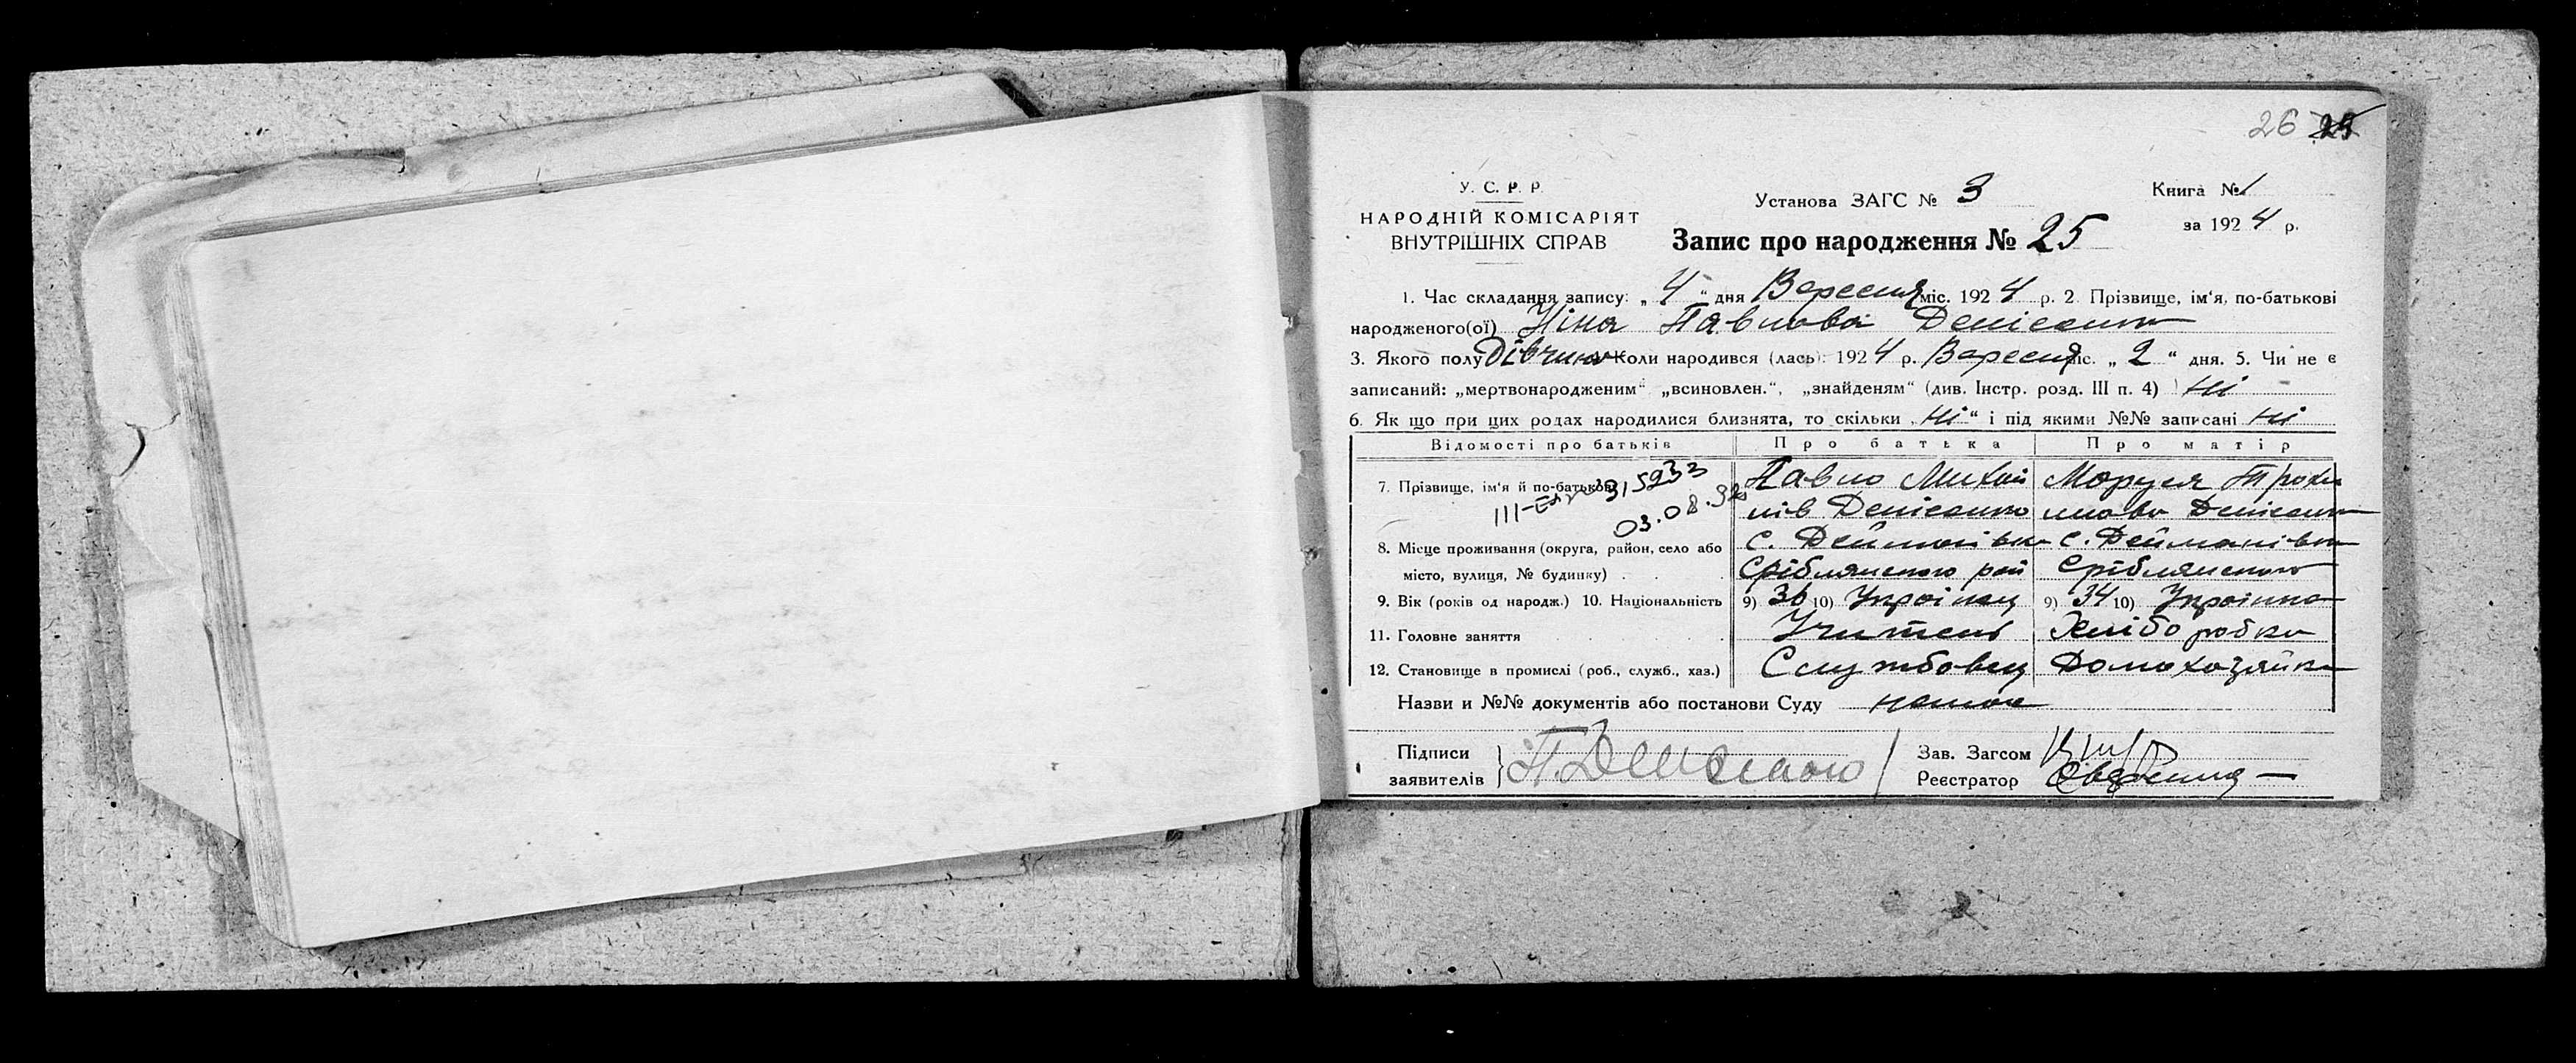 26 25
У. С. Р. Р.
НАРОДНІЙ КОМІСАРІЯТ
ВНУТРІШНІХ СПРАВ
Установа ЗАГС № 3
Книга № 1
за 1924 р.
Запис про народження № 25
1. Час складання запису: „4“ дня Вересня міс. 1924 р. 2. Прізвище, ім‘я, по-батькові
народженого(ої) Ніна Павлова Денісенко
3. Якого полу Дівчина Коли народився (лась): 1924 р. Вересня міс. „2“ дня. 5. Чи не є
записаний: „мертвонародженим“ „всиновлен.“, „знайденям“ (див. Інстр. розд. III п. 4) Ні
6. Як що при цих родах народилися близнята, то скільки „Ні“ і під якими №№ записані Ні
Відомості про батьків Про батька Про матір
7. Прізвище, ім‘я й по-батькові Павло Михай Маруся Трохи
лів Денісенко мова Денісенко
03.08.92
8. Місце проживання (округа, район, село або с. Дейманівка с. Дейманівка
місто, вулиця, № будинку) Сріблянського рай Сріблянського
9. Вік (років од народж.) 10. Національність 9) 36 10) Українец 9) 34 10) Українка
11. Головне заняття Учитель Хліборобка
12. Становище в промислі (роб., служб., хаз.) Службовец Домохазяйка
Назви и №№ документів або постанови Суду немае
Підписи
заявителів
Зав. Загсом
Реєстратор